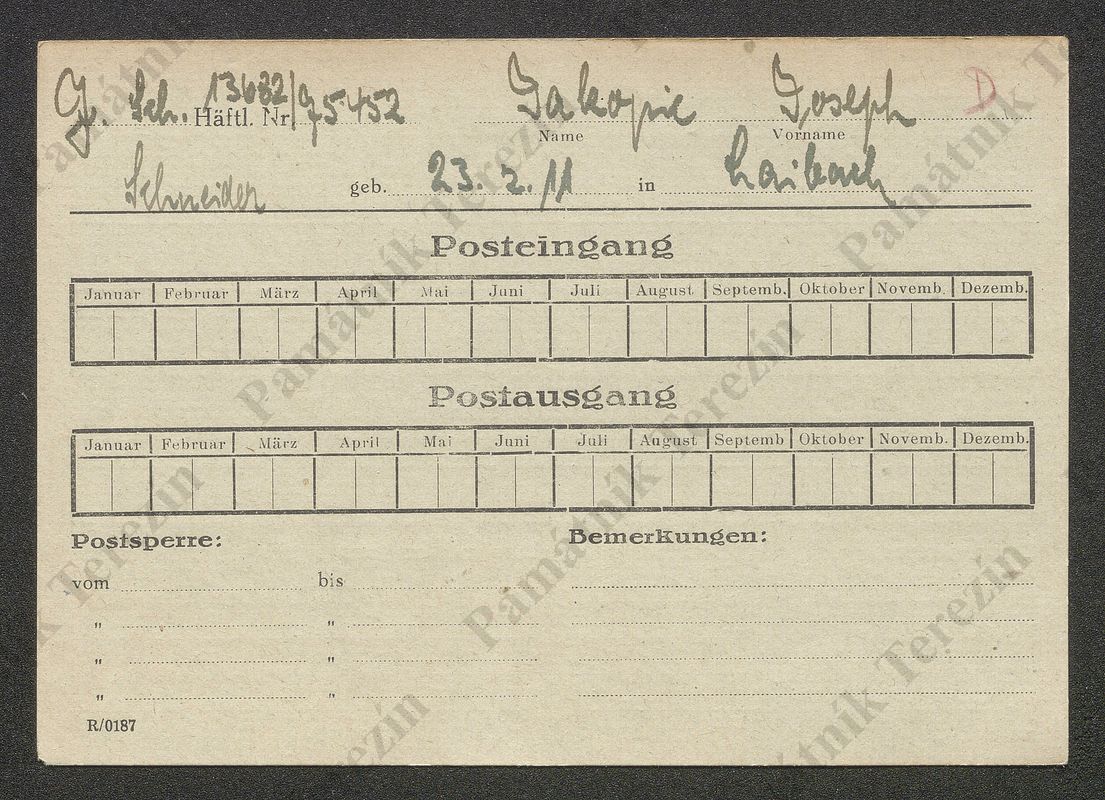 J. Sch. 13682/95452 Jakopic Joseph D
Häftl. Nr. Name Vorname
Schneider geb. 23. 2. 11 in Laibach
Posteingang
Januar Februar März April Mai Juni Juli August Septemb. Oktober Novemb. Dezemb.
Postausgang
Januar Februar März April Mai Juni Juli August Septemb Oktober Novemb. Dezemb.
Postsperre: Bemerkungen:
vom bis
" "
" "
" "
R/0187
Památník Terezín